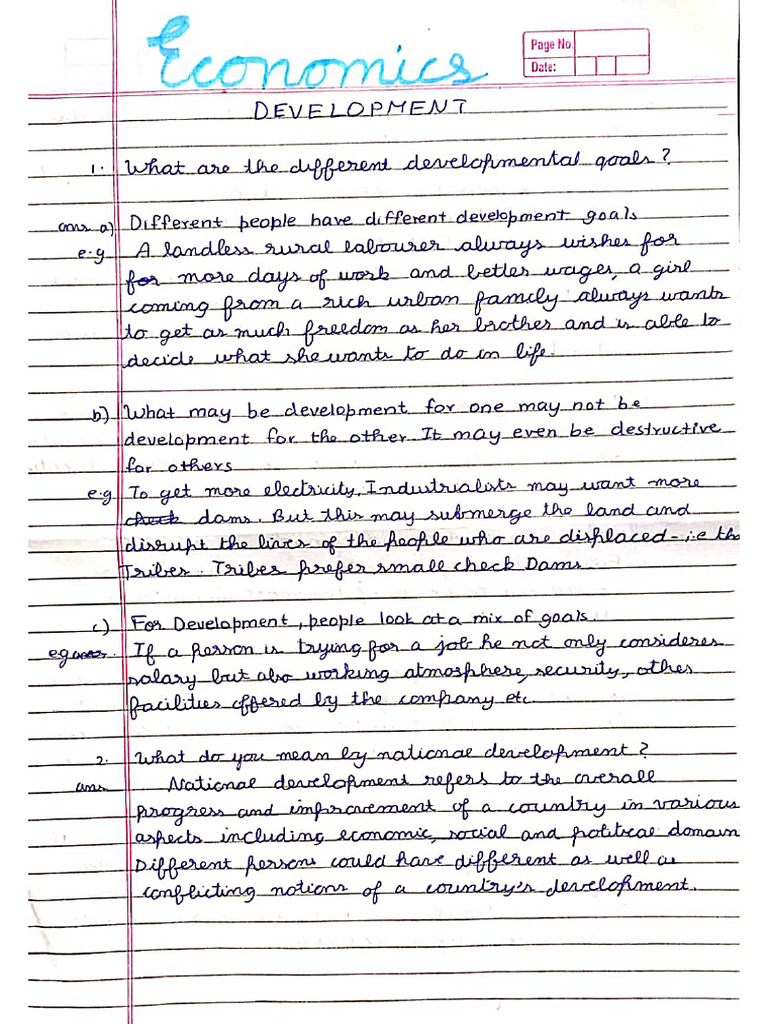 Economics
Page No.
Date:
DEVELOPMENT
1. What are the different developmental goals?
ans a) Different people have different development goals
e.g A landless rural labourer always wishes for
for more days of work and better wages, a girl
coming from a rich urban family always wants
to get as much freedom as her brother and is able to
decide what she wants to do in life.
b) What may be development for one may not be
development for the other. It may even be destructive
for others
e.g To get more electricity, Industrialists may want more
check dams. But this may submerge the land and
disrupt the lives of the people who are displaced - i.e the
Tribes. Tribes prefer small check Dams
c) For Development, people look at a mix of goals.
eg If a person is trying for a job he not only consideres
salary but also working atmosphere, security, other
facilities offered by the company etc.
2. What do you mean by national development?
ans National development refers to the overall
progress and improvement of a country in various
aspects including economic, social and political domain
Different persons could have different as well as
conflicting notions of a country's development.